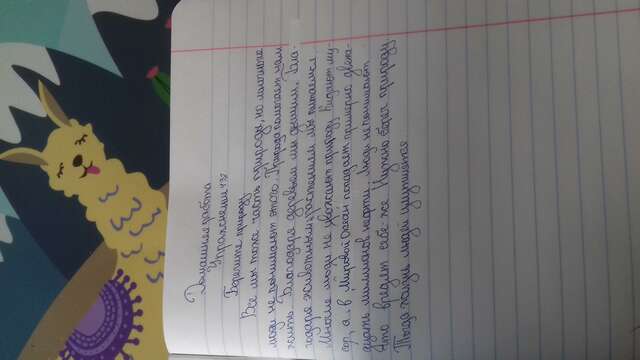 Домашняя работа
Упражнение 432
Берегите природу
Все мы тоже часть природы, но многие
люди не понимают этого. Природа помогает нам
жить. Благодаря деревьям мы дышим. Бла-
годаря животным и растениям мы питаемся.
Многие люди не уважают природу. Кидают му-
сор, а в Мировой Океан попадает примерно двена-
дцать миллионов нефти. Люди не понимают
что вредят себе же. Нужно беречь природу.
Тогда жизнь людей улучшится